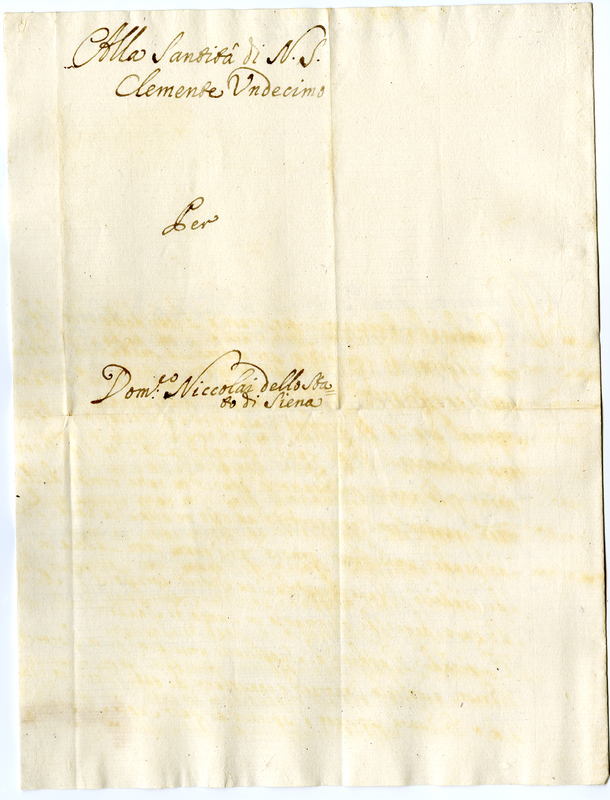 Alla Santità di N. S.
Clemente Undecimo
Per
Dom.co Niccolai dello Sta=
to di Siena